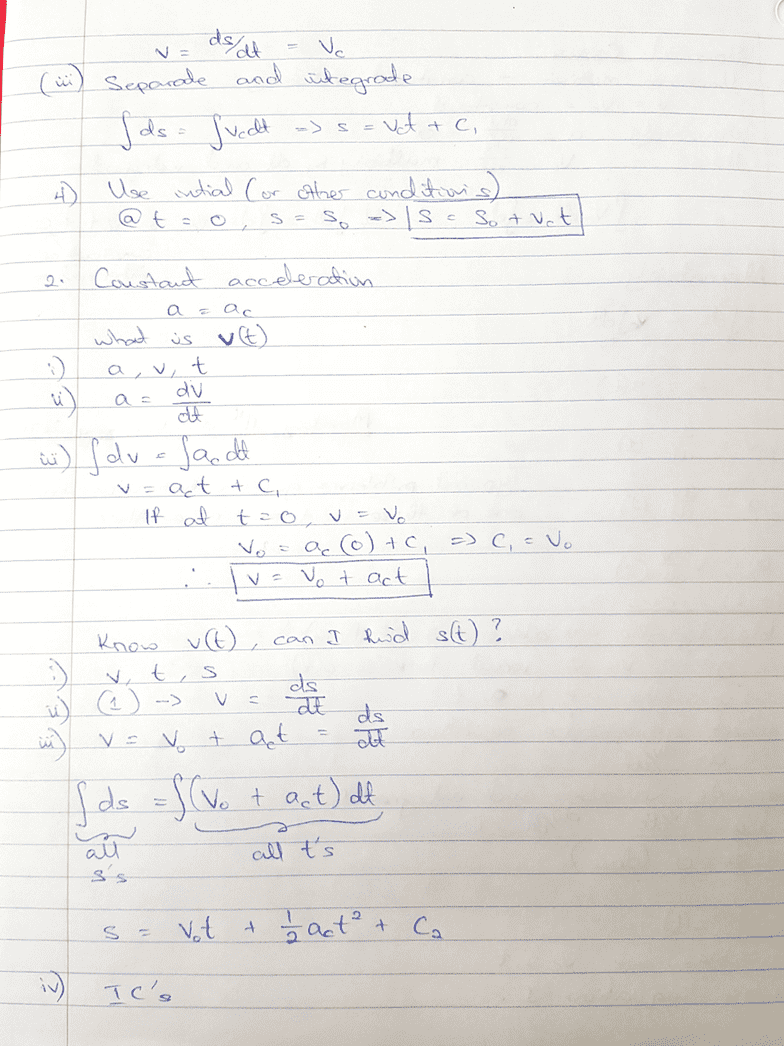 v = ds/dt = Vc
(iii) Separate and integrate
∫ds = ∫Vcdt => s = Vct + C₁
4) Use initial (or other conditions)
@ t = 0, s = S₀ => S = S₀ + Vct
2. Constant acceleration
a = ac
what is v(t)
i) a, v, t
ii) a = dv/dt
iii) ∫dv = ∫ac dt
v = act + C₁
If at t = 0, v = V₀
V₀ = ac(0) + C₁ => C₁ = V₀
∴ v = V₀ + act
Know v(t), can I find s(t)?
i) v, t, s
ii) (1) -> v = ds/dt
iii) v = V₀ + act = ds/dt
∫ds = ∫(V₀ + act) dt
all all t's
s's
s = V₀t + 1/2 act² + C₂
iv) IC's